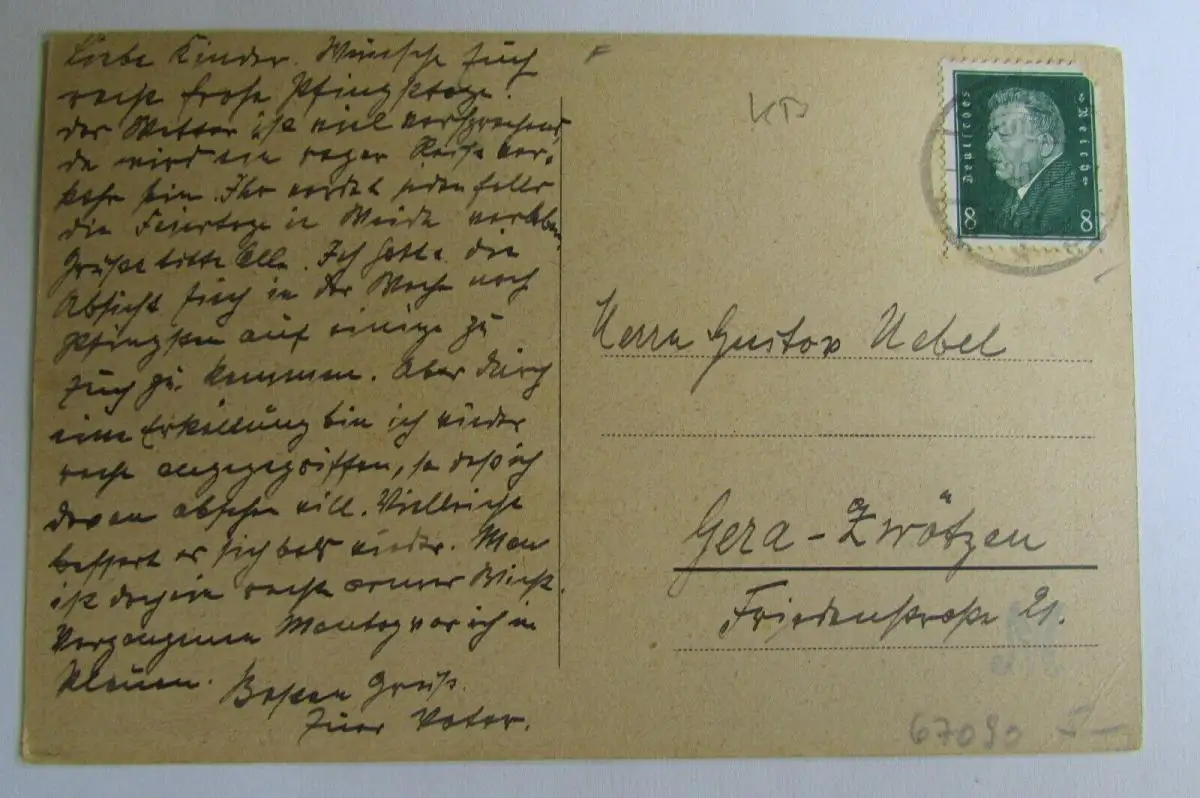 Liebe Kinder. Wünsche Euch
recht frohe Pfingsttage.
Das Wetter ist viel versprechend,
da wird ein reger Reise ver-
kehr sein. Ihr werdet jedenfalls
die Feiertage in Weida verleben.
Grüße bitte Alle. Ich hatte die
Absicht Euch in der Woche nach
Pfingsten auf einige zu
Euch zu kommen. Aber durch
eine Erkältung bin ich wieder
recht angegegriffen, so daß ich
davon absehen will. Vielleicht
bessert es sich bald wieder. Man
ist doch ein recht armer Wicht.
Vergangenen Montag war ich in
Plauen. Besten Gruß.
Euer Vater.
KB
Deutsches Reich
8 8
Herrn Gustav Uebel
Gera-Zwötzen
Friedenstraße 21.
67090 I-